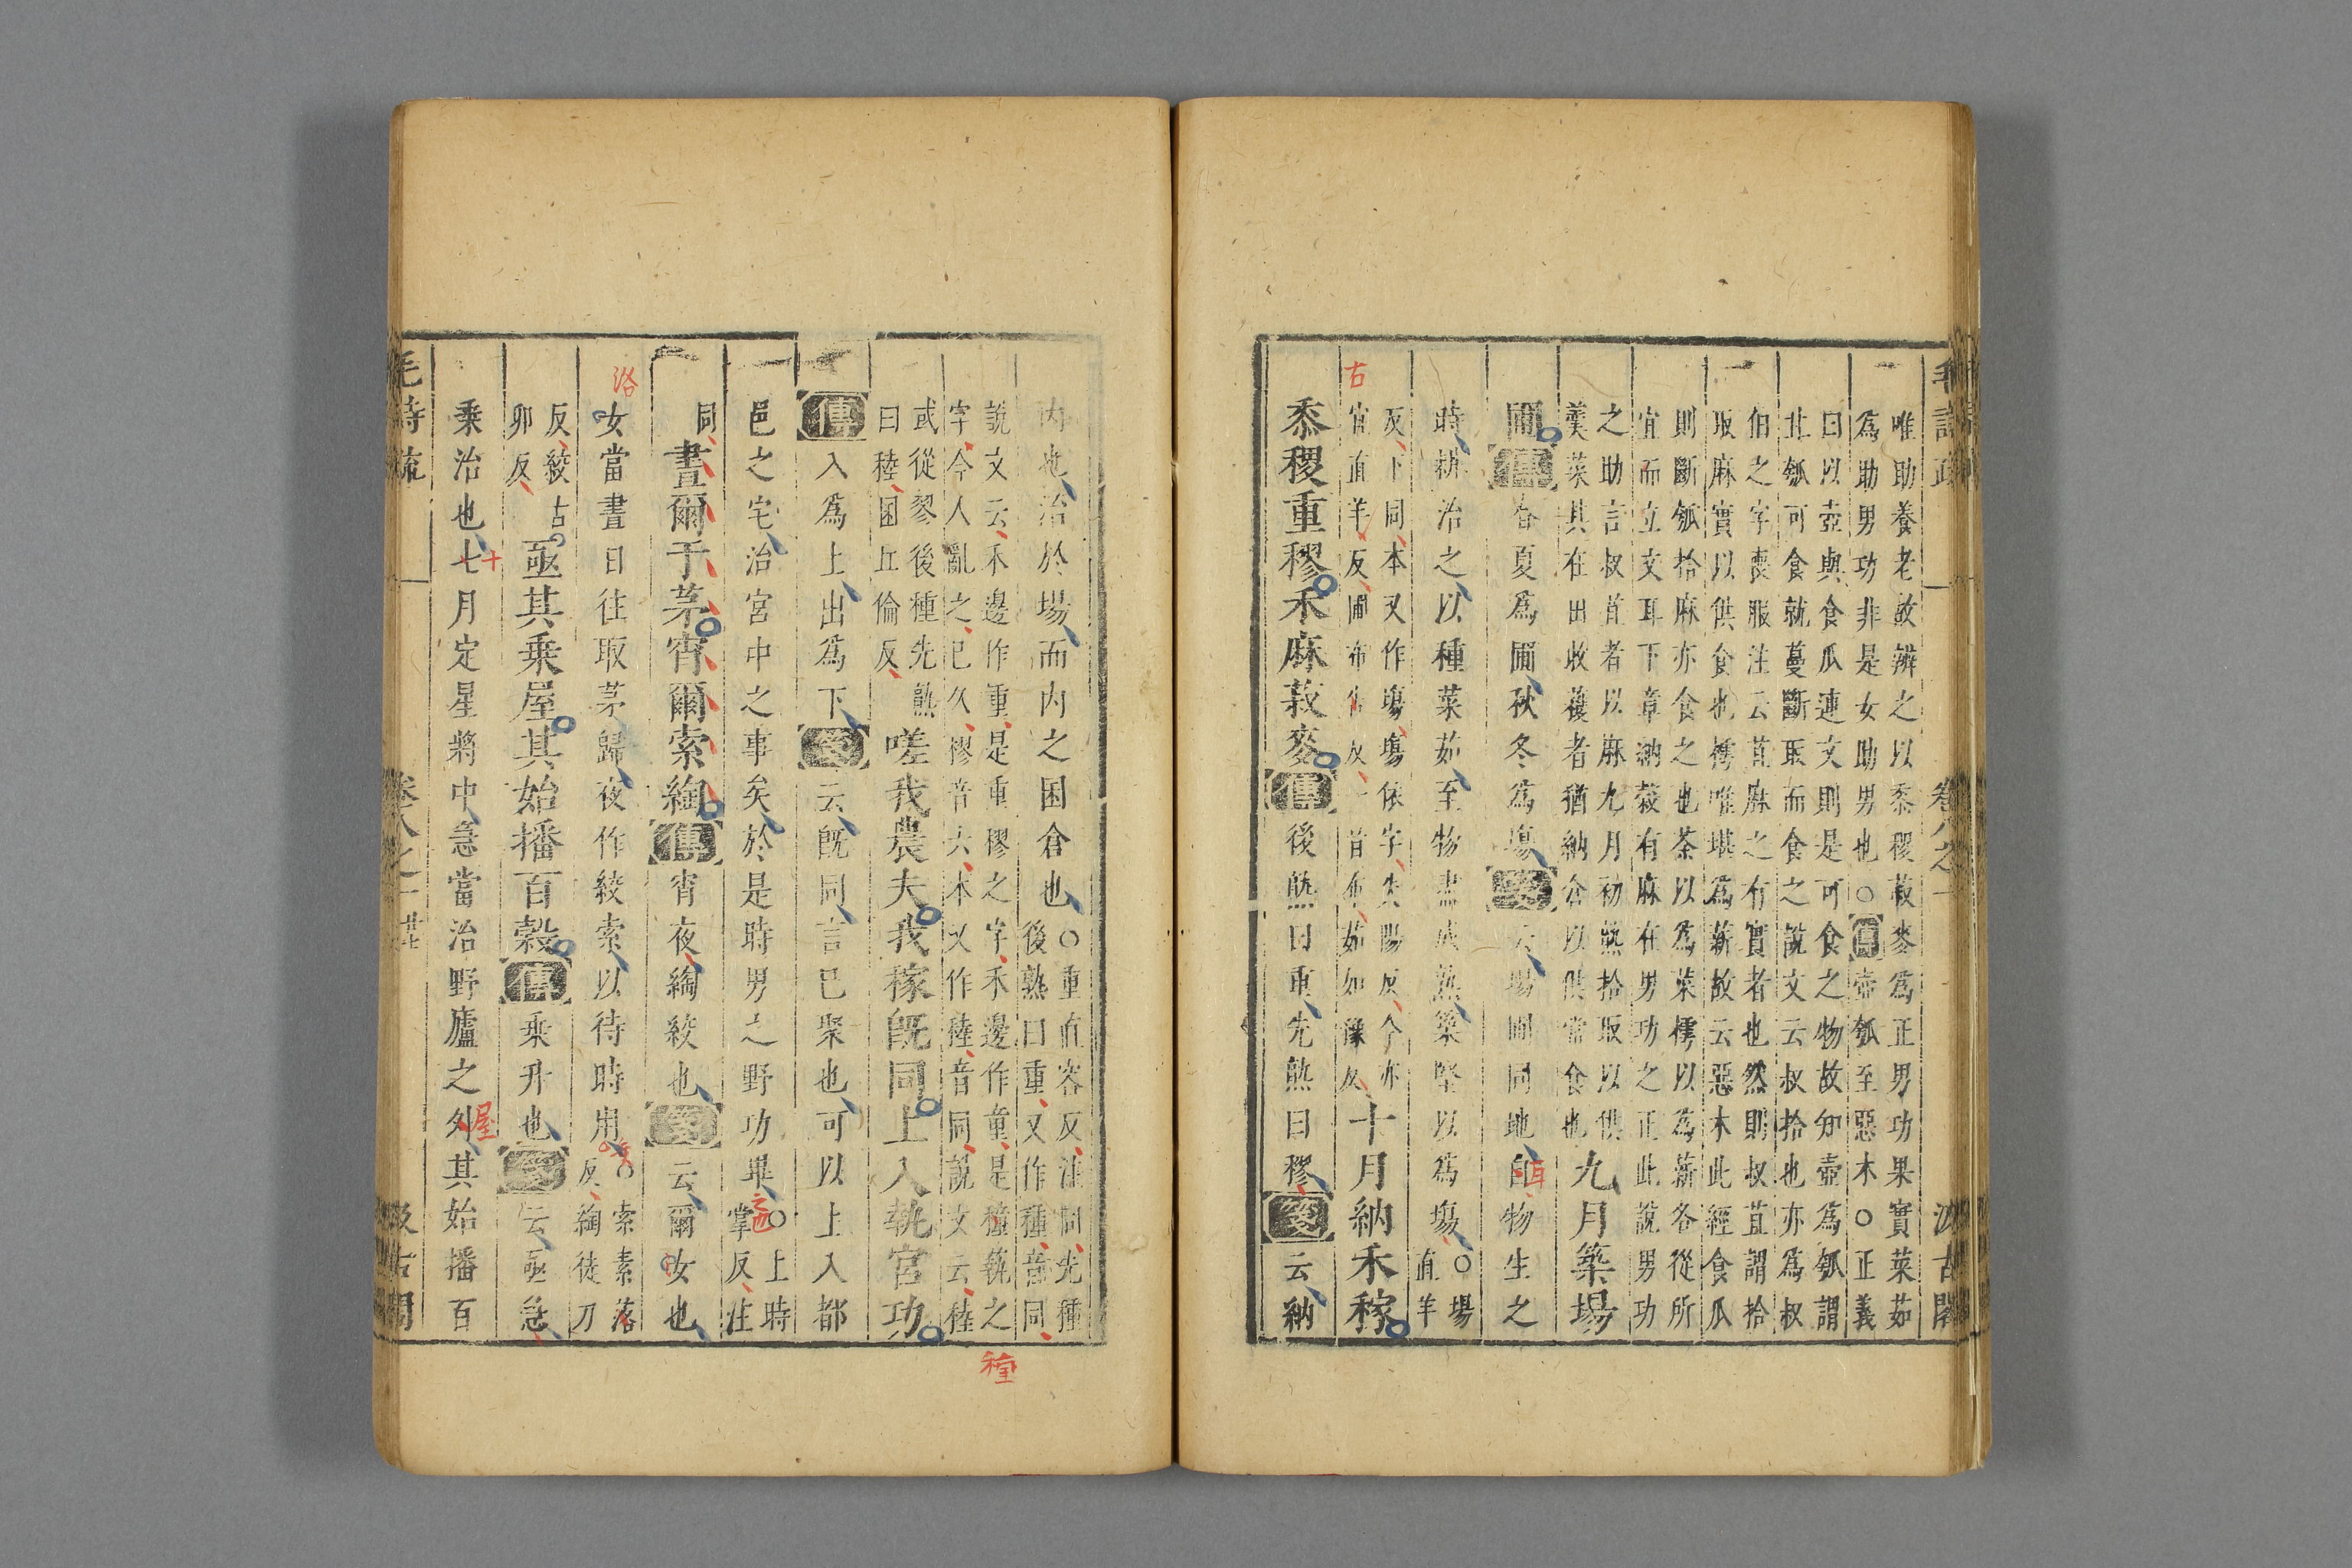 唯助養老故辨之以黍稷菽麥爲正男功果實菜茹
爲助男功非是女助男也○傳壺瓠至惡木○正義
曰以壺與食瓜連文則是可食之物故知壺爲瓠謂
北瓠可食就蔓斷取而食之說文云叔拾也亦爲叔
伯之字喪服注云苴麻之有實者也然則叔苴謂拾
取麻實以供食也樗唯堪爲薪故云惡木此經食瓜
則斷瓠拾麻亦食之也荼以爲菜樗以爲薪各從所
宜而立文耳下章納穀有麻在男功之正此說男功
之助言叔苴者以麻九月初熟拾取以供
羹菜其在出收穫者猶納倉以供常食也
九月築場
圃傳春夏爲圃秋冬爲場箋云場圃同地自物生之
時耕治之以種菜茹至物盡成熟築堅以爲場○場
直羊
反下同本又作塲塲依字失陽反今亦
宜直羊反圃布古反一音布茹如豫反
十月納禾稼
黍稷重穋禾麻菽麥傳後熟曰重先熟曰穋箋云納
內也治於場而內之囷倉也○重直容反注同先種
後熟曰重又作種音同
說文云禾邊作重是重穋之字禾邊作童是穜蓺之
字今人亂之已久穋音六本又作稑音同說文云稑
或從翏後種先熟
曰稑囷丘倫反
嗟我農夫我稼既同上入執宮功
傳入爲上出爲下箋云既同言已聚也可以上入都
邑之宅治宮中之事矣於是時男之野功畢○上時
掌反注
同晝爾于茅宵爾索綯傳宵夜綯絞也箋云爾女也
女當晝日往取茅歸夜作絞索以待時用○索素落
反綯徒刀
反絞古
卯反
亟其乘屋其始播百穀傳乘升也箋云亟急
乘治也七月定星將中急當治野廬之外其始播百
毛詩疏
卷八之一
汲古閣
洛
古
十
屋
耳